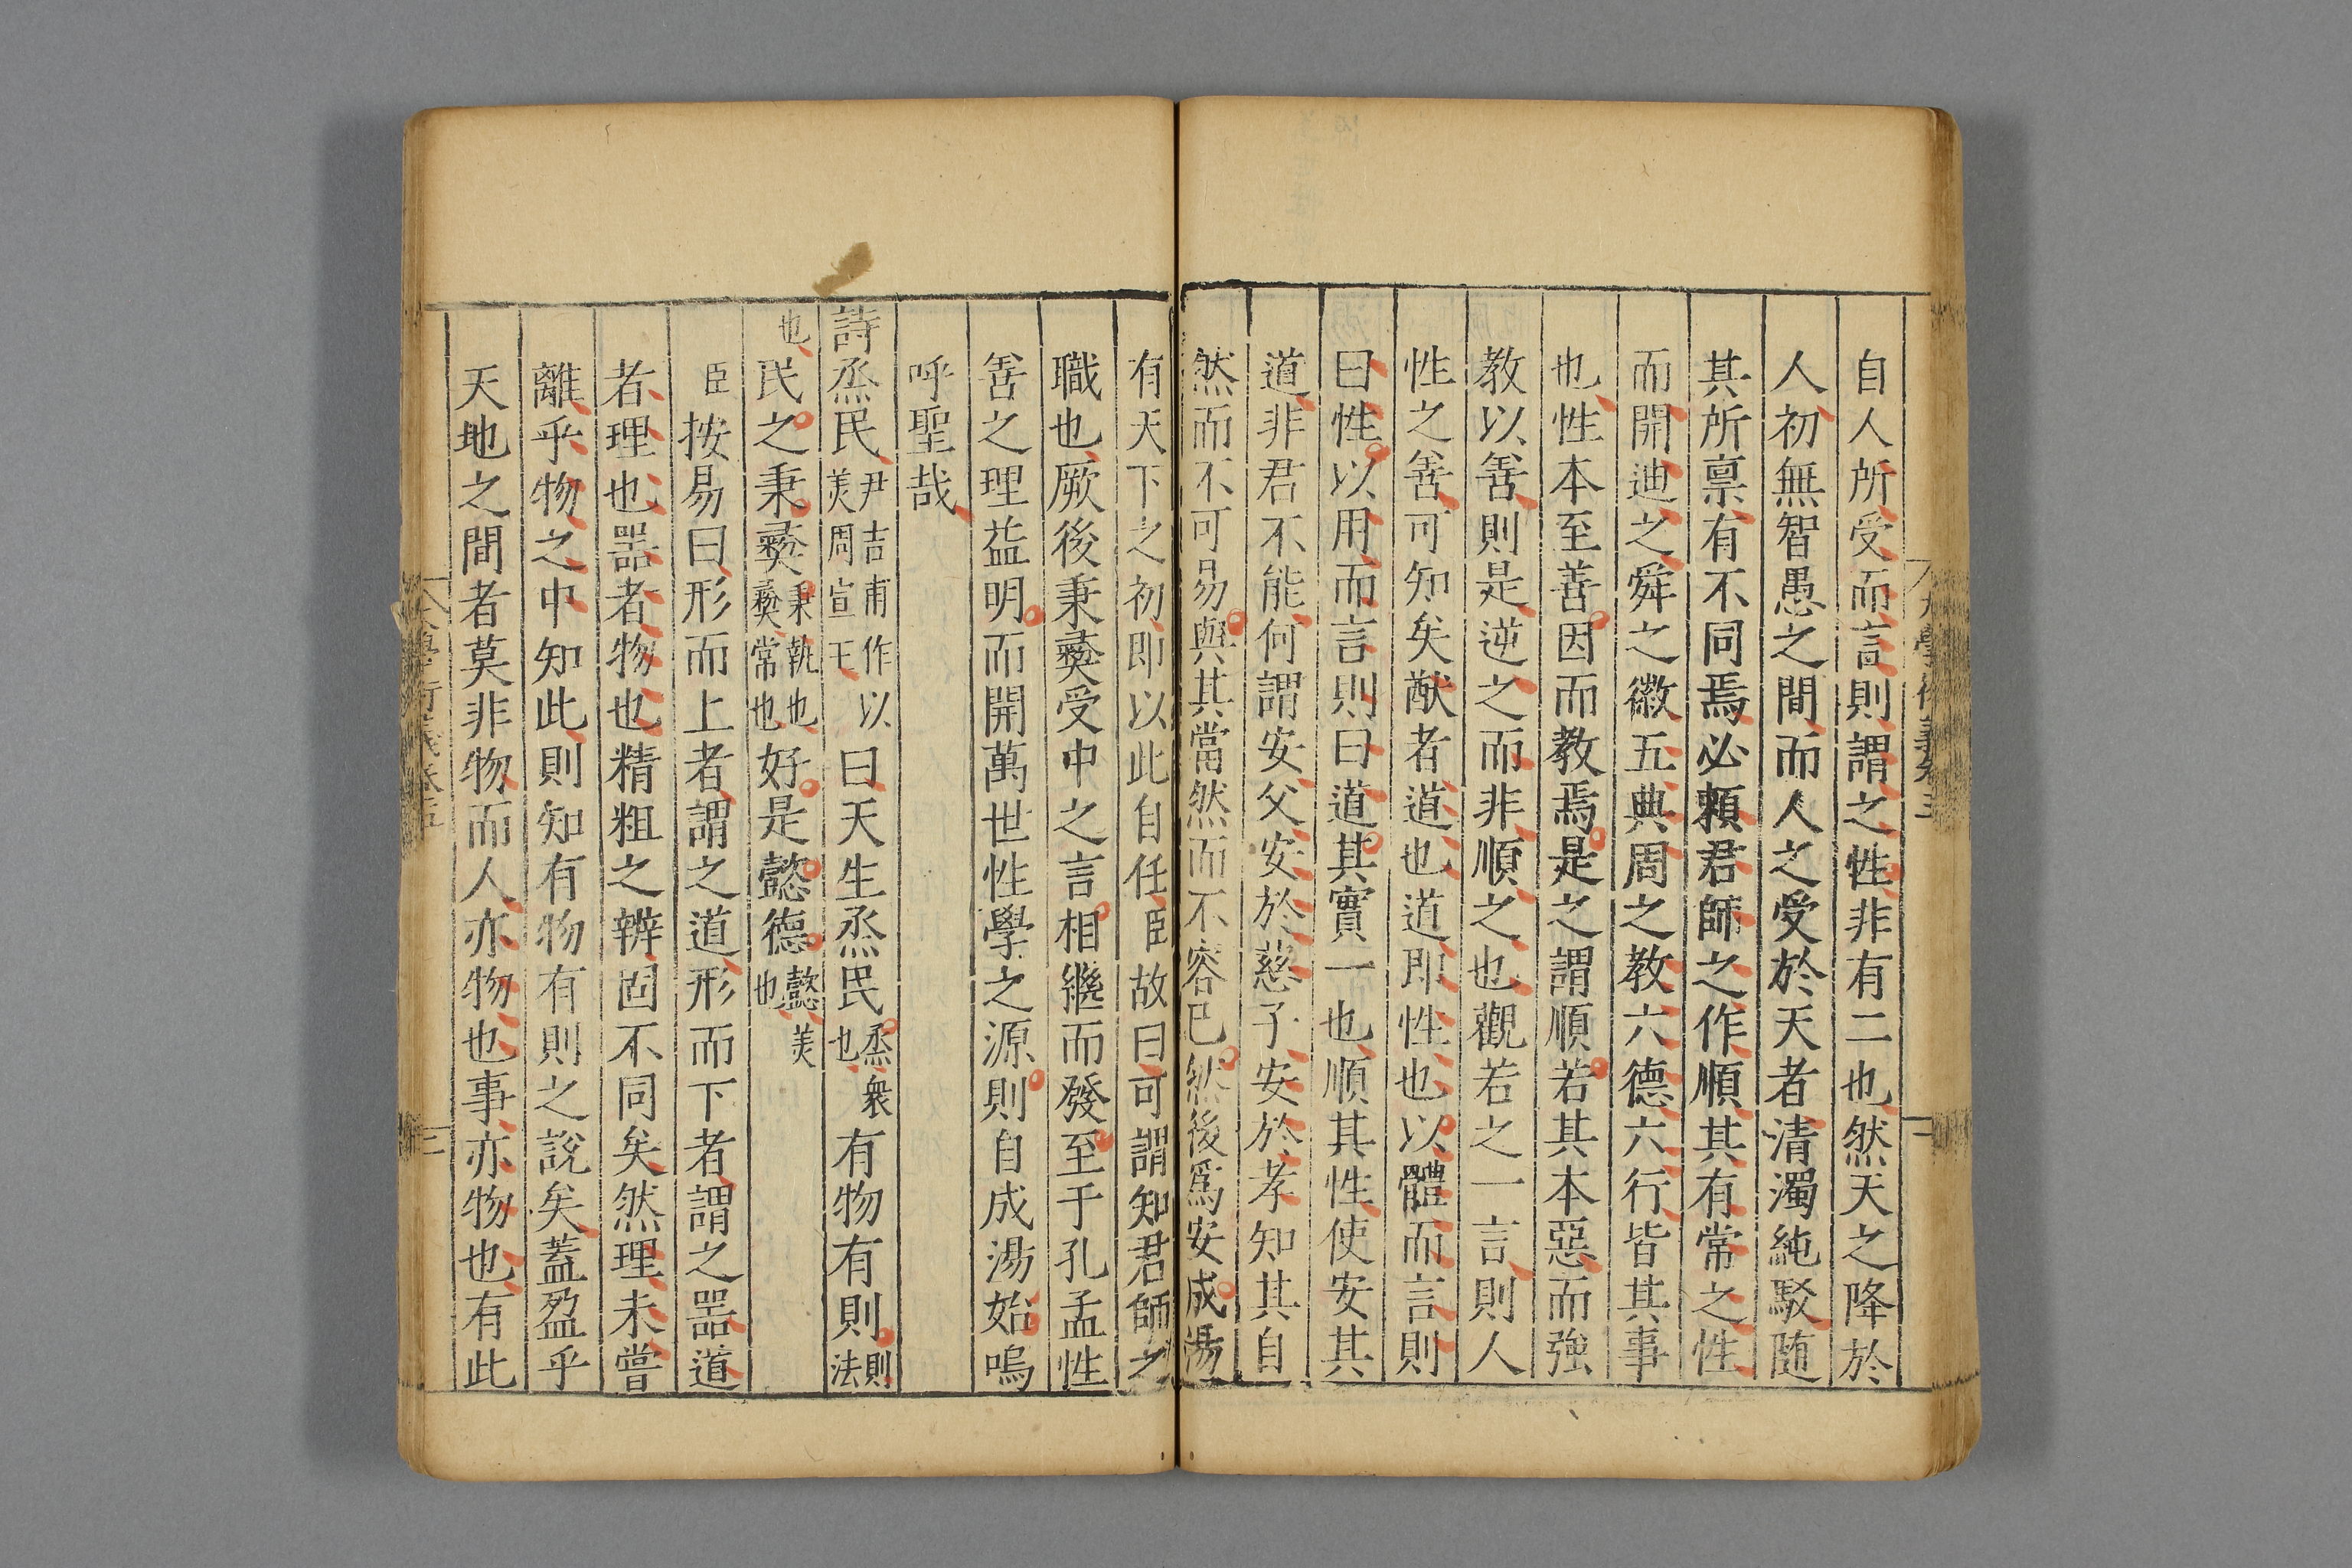 自人所受而言則謂之性非有二也然天之降於
人初無智愚之間而人之受於天者清濁純駁随
其所禀有不同焉必頼君師之作順其有常之性
而開迪之舜之徽五典周之教六德六行皆其事
也性本至善因而教焉是之謂順若其本惡而強
教以善則是逆之而非順之也觀若之一言則人
性之善可知矣猷者道也道即性也以體而言則
曰性以用而言則曰道其實一也順其性使安其
道非君不能何謂安父安於慈子安於孝知其自
然而不可易與其當然而不容已然後爲安成湯
有天下之初即以此自任臣故曰可謂知君師之
職也厥後秉彝受中之言相繼而發至于孔孟性
善之理益明而開萬世性學之源則自成湯始嗚
呼聖哉
詩烝民尹吉甫作以美周宣王曰天生烝民烝衆也有物有則則法
也民之秉彝秉執也彝常也好是懿德懿美也
臣按易曰形而上者謂之道形而下者謂之噐道
者理也噐者物也精粗之辨固不同矣然理未嘗
離乎物之中知此則知有物有則之說矣蓋盈乎
天地之間者莫非物而人亦物也事亦物也有此
大學衍義卷五
二